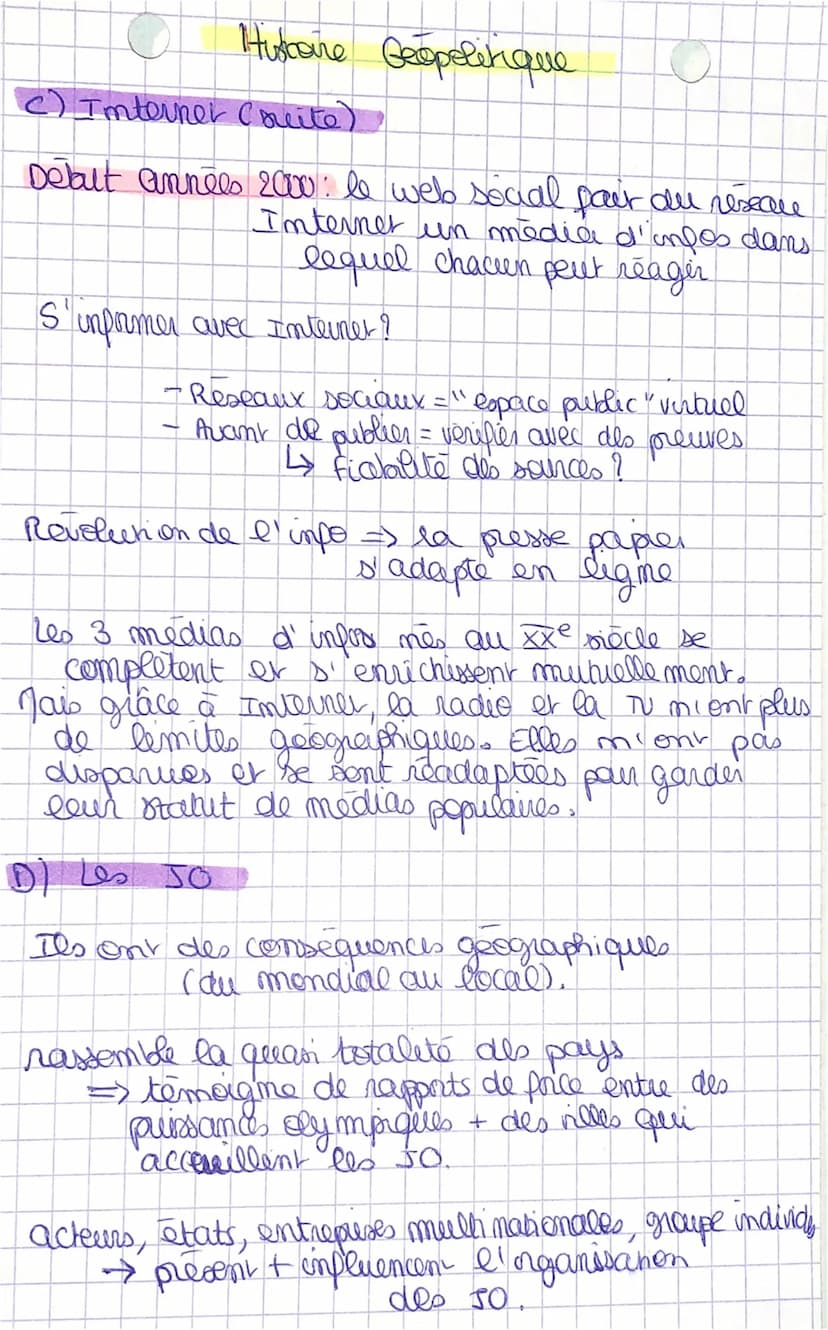 Histoire Géopolitique
C) Internet (suite)
Début années 2000 : le web social fait du réseau
Internet un média d'infos dans
lequel chacun peut réagir
S'informer avec Internet ?
- Réseaux sociaux = "espace public" virtuel
- Avant de publier = vérifier avec des preuves
↳ fiabilité des sources ?
Révolution de l'info => la presse papier
s'adapte en ligne
Les 3 médias d'infos nés au XXe siècle se
complètent et s'enrichissent mutuellement.
Mais grâce à Internet, la radio et la TV n'ont plus
de limites géographiques. Elles n'ont pas
disparues et se sont réadaptées pour garder
leur statut de médias populaires.
D) Les JO
Ils ont des conséquences géographiques
(du mondial au local).
rassemble la quasi totalité des pays
=> témoigne de rapports de force entre des
puissances olympiques + des villes qui
accueillent les JO.
acteurs, états, entreprises multinationales, groupe individu
→ pèsent + influencent l'organisation
des JO.